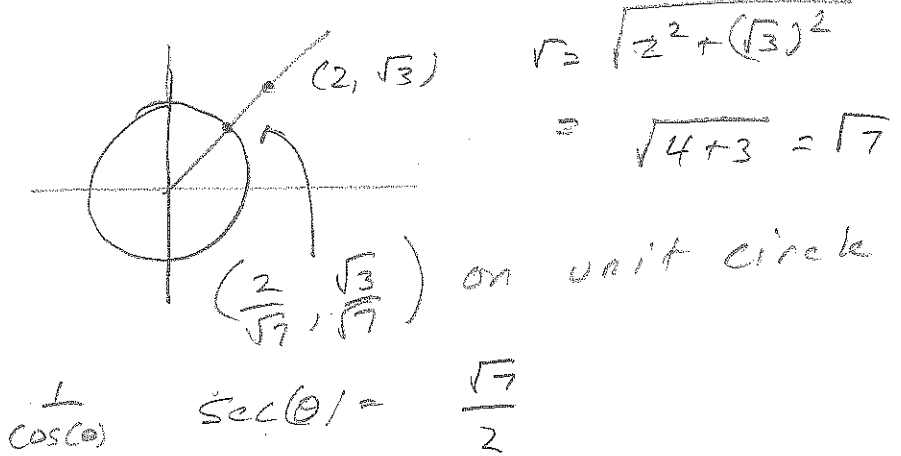 (2, √3)    r = √(2² + (√3)²)
= √(4+3) = √7
(2/√7, √3/√7) on unit circle
1/cos(θ)    sec(θ) = √7/2